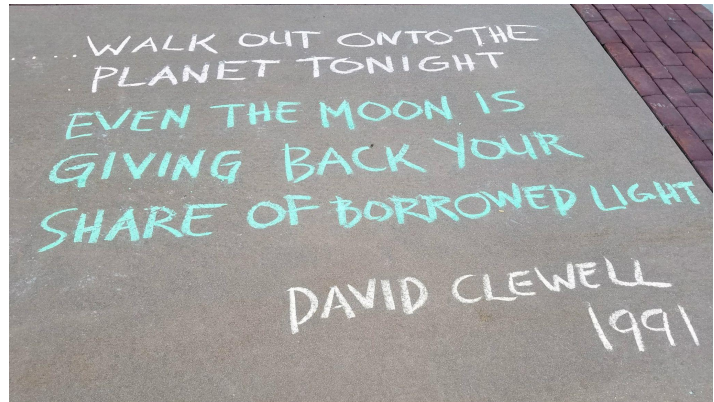 ....WALK OUT ONTO THE
PLANET TONIGHT
EVEN THE MOON IS
GIVING BACK YOUR
SHARE OF BORROWED LIGHT
DAVID CLEWELL
1991